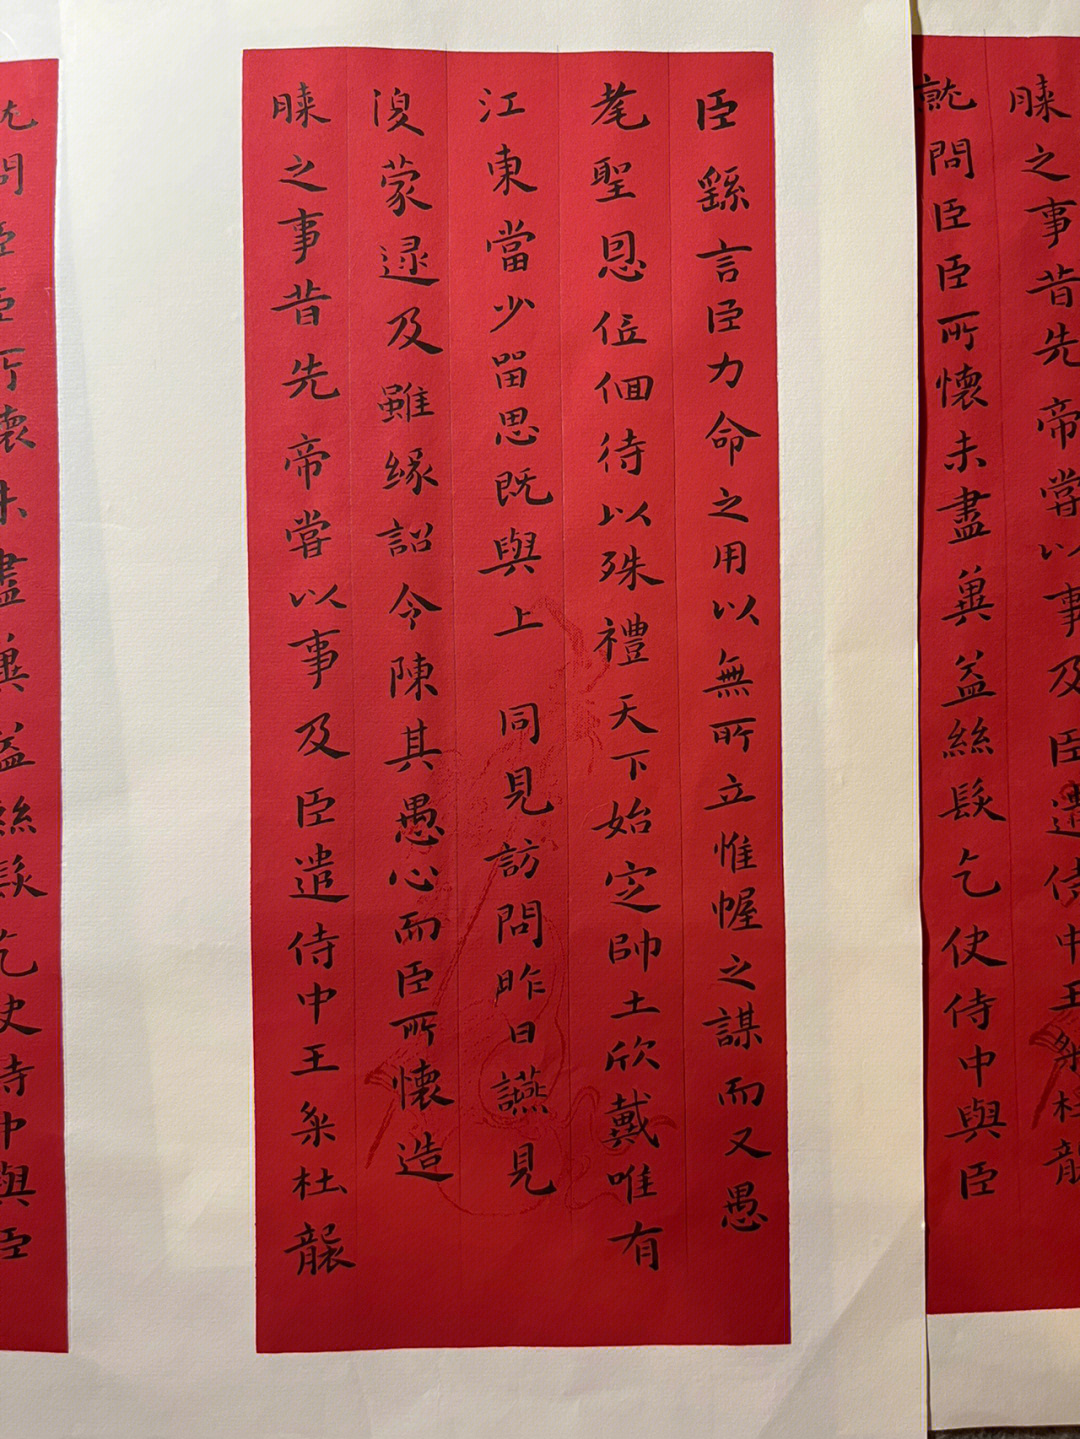 膝之事昔先帝嘗以事及臣遣侍中王粲杜襲
就問臣臣所懷未盡冀益絲髮乞使侍中與臣
臣繇言臣力命之用以無所立惟幄之謀而又愚
耄聖恩低佪待以殊禮天下始定帥土欣戴唯有
江東當少留思既與上同見訪問昨日讌見
復蒙逮及雖緣詔令陳其愚心而臣所懷造
膝之事昔先帝嘗以事及臣遣侍中王粲杜襲
就問臣臣所懷未盡冀益絲髮乞使侍中與臣